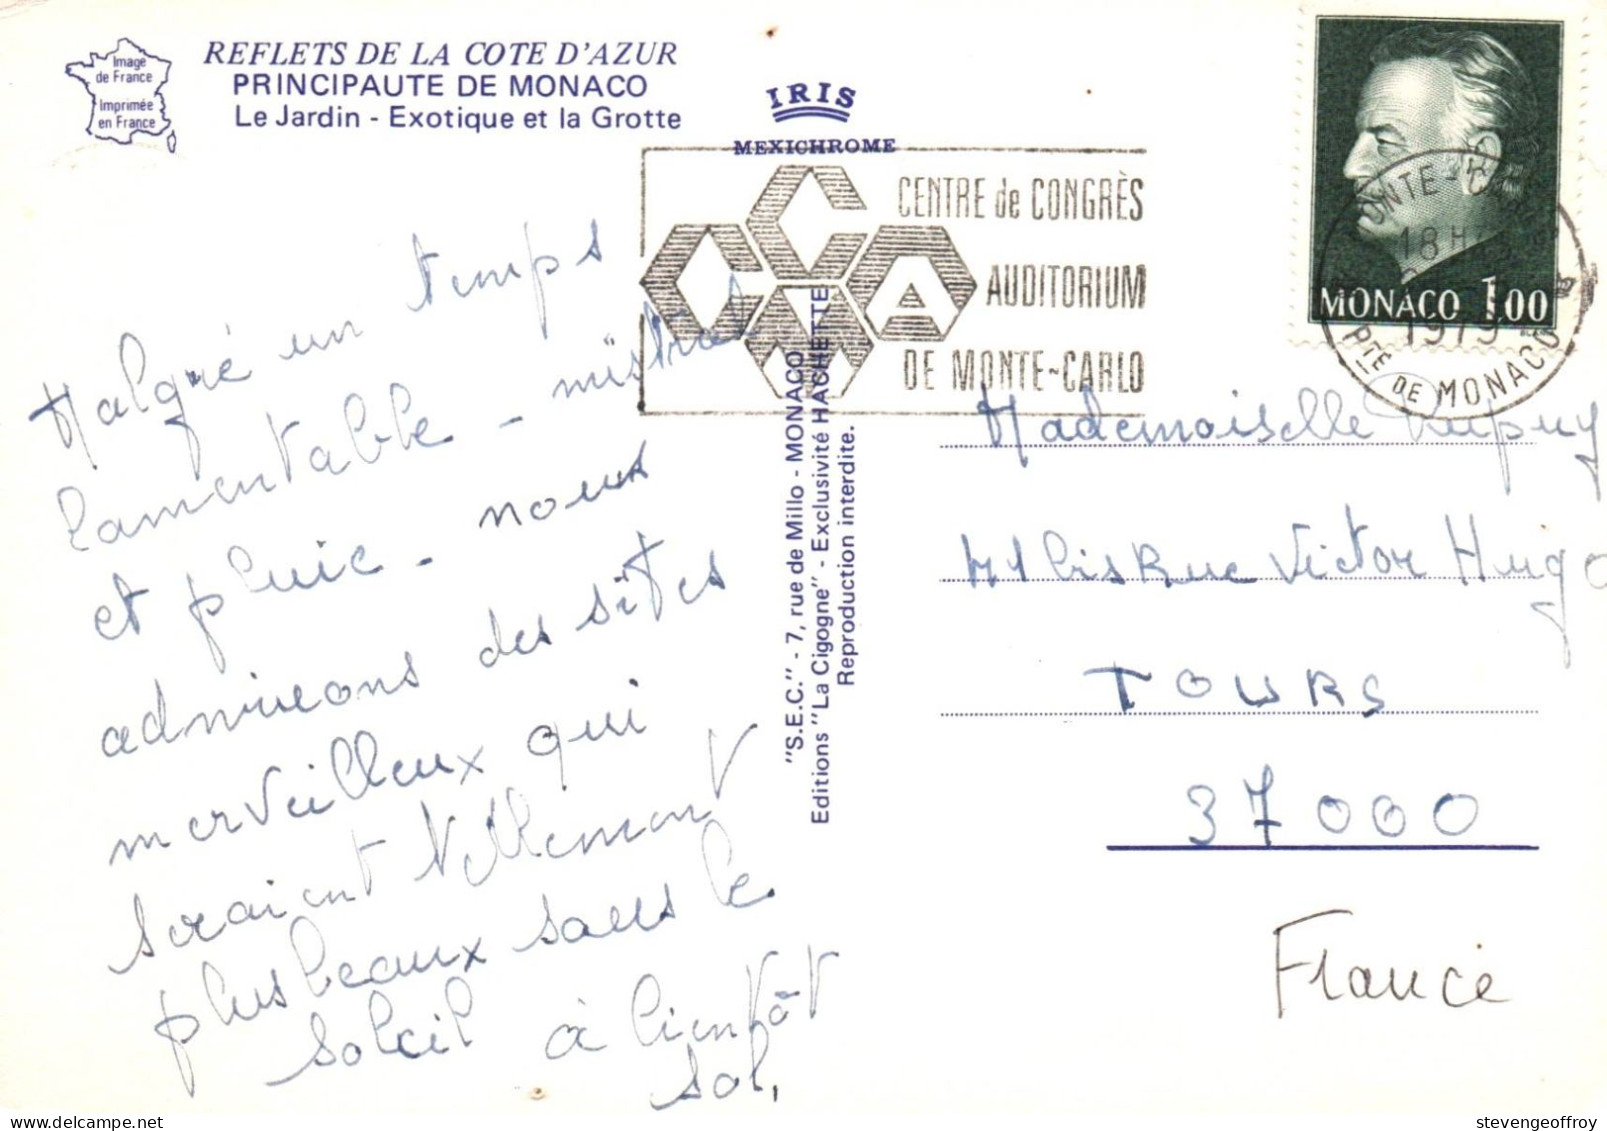 Image
de France
Imprimée
en France
REFLETS DE LA COTE D'AZUR
PRINCIPAUTE DE MONACO
Le Jardin - Exotique et la Grotte
IRIS
MEXICHROME
CENTRE de CONGRÈS
AUDITORIUM
DE MONTE-CARLO
CCAM
MONACO 1,00
MONTE-CARLO
18 H
1979
PTE DE MONACO
Malgré un temps
lamentable - mistral
et pluie - nous
admirons des sites
merveilleux qui
seraient tellement
plus beaux sous le
soleil à bientôt
"S.E.C." - 7, rue de Millo - MONACO
Editions "La Cigogne" - Exclusivité HACHETTE
Reproduction interdite.
Mademoiselle Dupuy
41 bis Rue Victor Hugo
TOURS
37000
France
stevengeoffroy